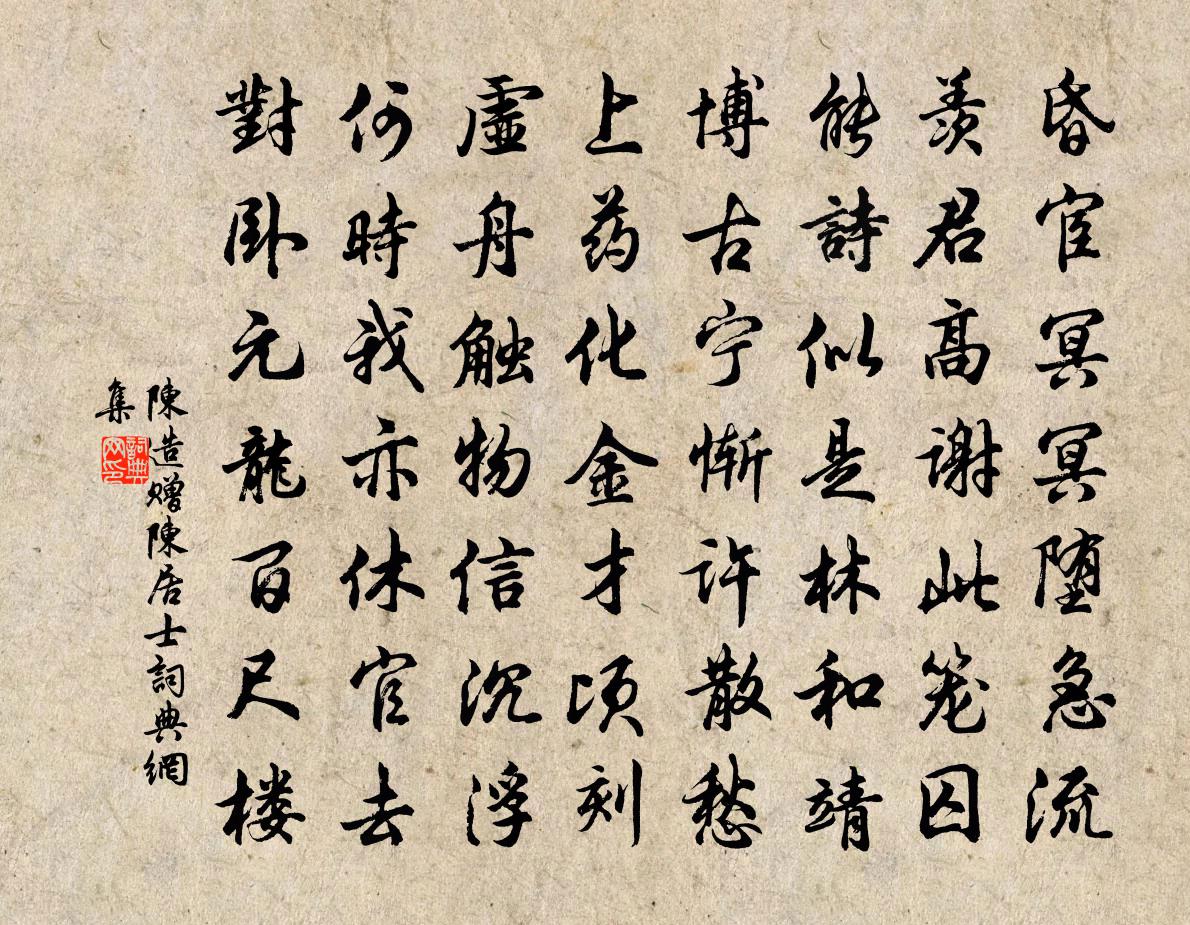 昏宦冥冥堕急流
羡君高謝此笼囚
能詩似是林和靖
博古宁惭许散愁
上药化金才顷刻
虚舟触物信沉浮
何時我亦休官去
對卧元龍百尺楼
陳造赠陳居士詞典網
集
詞典网印